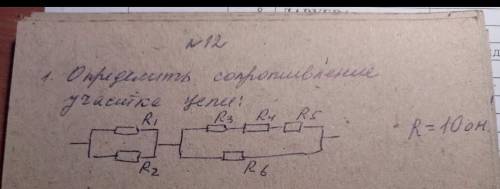 №12
1. Определить сопротивление
участка цепи:
R1 R3 R4 R5
R=10 ом.
R2 R6